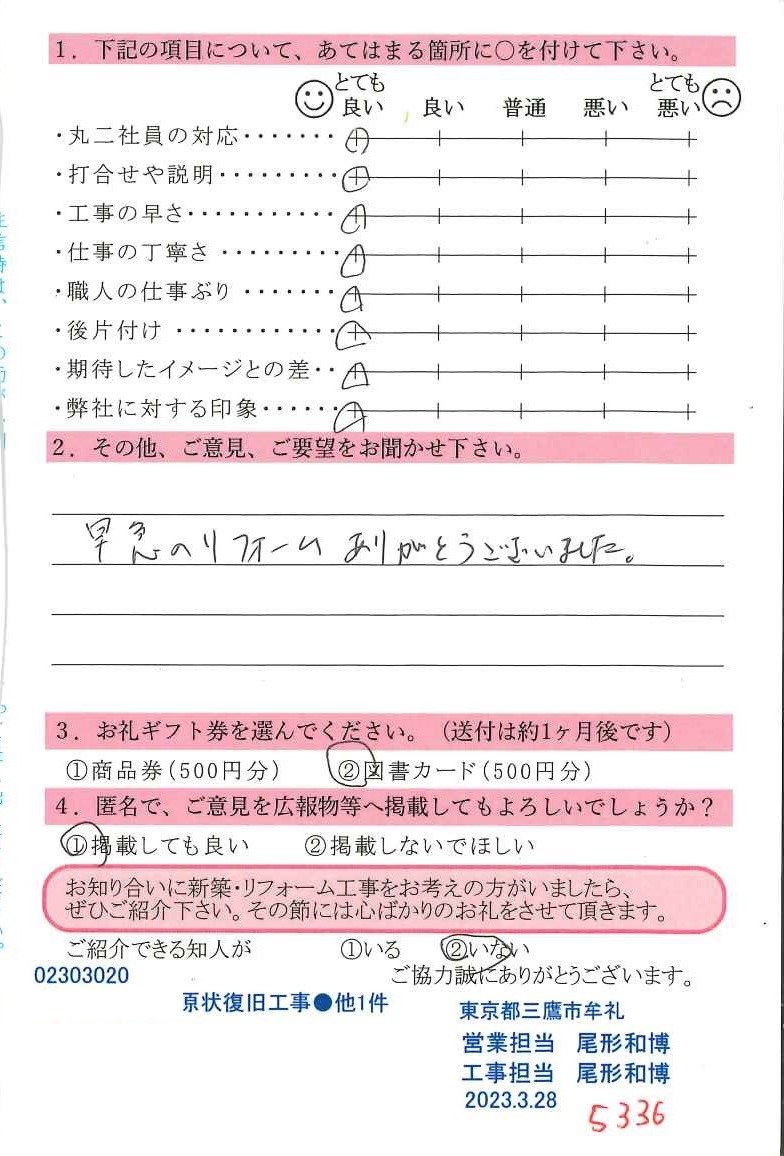 1．下記の項目について、あてはまる箇所に○を付けて下さい。
とても良い 良い 普通 悪い とても悪い
・丸二社員の対応・・・・・・・
・打合せや説明・・・・・・・・・
・工事の早さ・・・・・・・・・・・
・仕事の丁寧さ・・・・・・・・・
・職人の仕事ぶり・・・・・・・
・後片付け・・・・・・・・・・・・
・期待したイメージとの差・・
・弊社に対する印象・・・・・・
2．その他、ご意見、ご要望をお聞かせ下さい。
早急のリフォームありがとうございました。
3．お礼ギフト券を選んでください。（送付は約1ヶ月後です）
①商品券（500円分） ②図書カード（500円分）
4．匿名で、ご意見を広報物等へ掲載してもよろしいでしょうか？
①掲載しても良い ②掲載しないでほしい
お知り合いに新築・リフォーム工事をお考えの方がいましたら、
ぜひご紹介下さい。その節には心ばかりのお礼をさせて頂きます。
ご紹介できる知人が ①いる ②いない
02303020 ご協力誠にありがとうございます。
原状復旧工事●他1件 東京都三鷹市牟礼
営業担当 尾形和博
工事担当 尾形和博
2023.3.28
5336